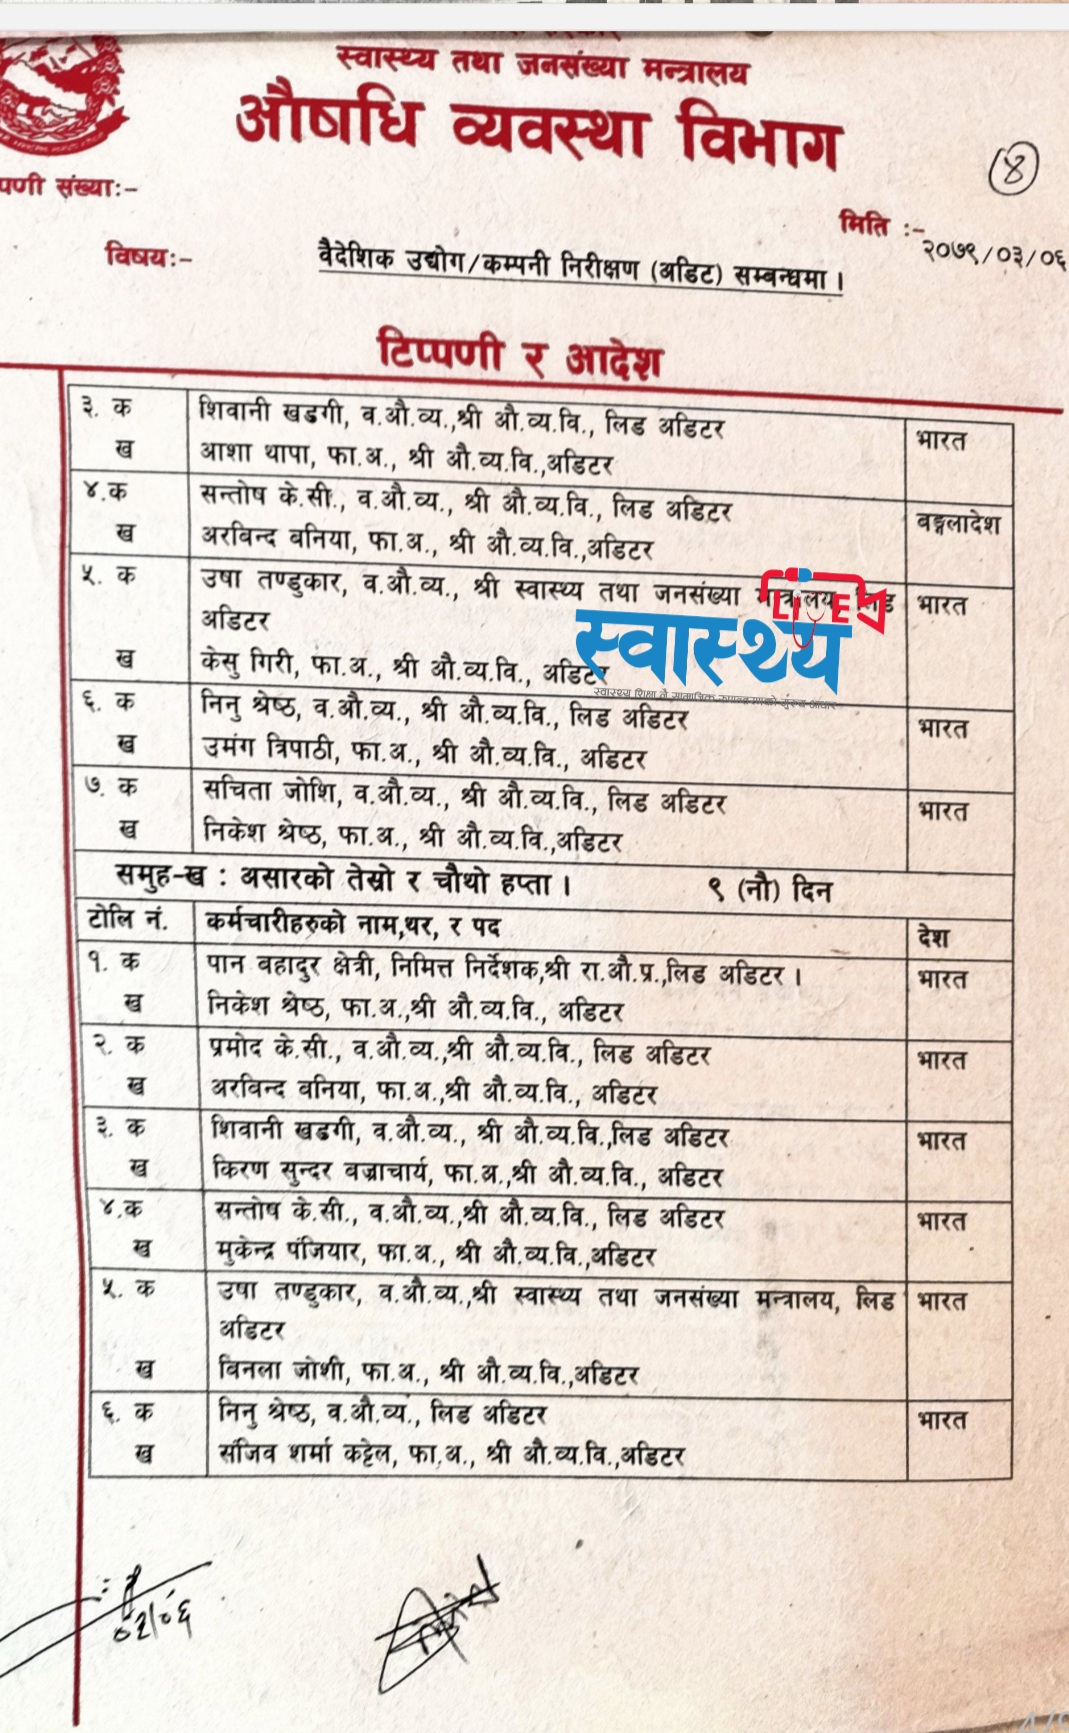 स्वास्थ्य तथा जनसंख्या मन्त्रालय
औषधि व्यवस्था विभाग
४
पणी संख्याः-
मिति :-
२०७९/०३/०६
विषयः-
वैदेशिक उद्योग/कम्पनी निरीक्षण (अडिट) सम्बन्धमा ।
टिप्पणी र आदेश
३. क शिवानी खडगी, व.औ.व्य.,श्री औ.व्य.वि., लिड अडिटर भारत
ख आशा थापा, फा.अ., श्री औ.व्य.वि.,अडिटर
४.क सन्तोष के.सी., व.औ.व्य., श्री औ.व्य.वि., लिड अडिटर वङ्गलादेश
ख अरविन्द वनिया, फा.अ., श्री औ.व्य.वि.,अडिटर
५. क उषा तण्डुकार, व.औ.व्य., श्री स्वास्थ्य तथा जनसंख्या मन्त्रालय, लिड भारत
अडिटर
ख केसु गिरी, फा.अ., श्री औ.व्य.वि., अडिटर
LIVE
स्वास्थ्य
६. क निनु श्रेष्ठ, व.औ.व्य., श्री औ.व्य.वि., लिड अडिटर भारत
ख उमंग त्रिपाठी, फा.अ., श्री औ.व्य.वि., अडिटर
७. क सचिता जोशि, व.औ.व्य., श्री औ.व्य.वि., लिड अडिटर भारत
ख निकेश श्रेष्ठ, फा.अ., श्री औ.व्य.वि.,अडिटर
समुह-ख : असारको तेस्रो र चौथो हप्ता । ९ (नौ) दिन
टोलि नं. कर्मचारीहरुको नाम,थर, र पद देश
१. क पान वहादुर क्षेत्री, निमित्त निर्देशक,श्री रा.औ.प्र.,लिड अडिटर । भारत
ख निकेश श्रेष्ठ, फा.अ.,श्री औ.व्य.वि., अडिटर
२. क प्रमोद के.सी., व.औ.व्य.,श्री औ.व्य.वि., लिड अडिटर भारत
ख अरविन्द वनिया, फा.अ.,श्री औ.व्य.वि., अडिटर
३. क शिवानी खडगी, व.औ.व्य., श्री औ.व्य.वि.,लिड अडिटर भारत
ख किरण सुन्दर वज्राचार्य, फा.अ.,श्री औ.व्य.वि., अडिटर
४.क सन्तोष के.सी., व.औ.व्य.,श्री औ.व्य.वि., लिड अडिटर भारत
ख मुकेन्द्र पंजियार, फा.अ., श्री औ.व्य.वि.,अडिटर
५. क उषा तण्डुकार, व.औ.व्य.,श्री स्वास्थ्य तथा जनसंख्या मन्त्रालय, लिड भारत
अडिटर
ख विनला जोशी, फा.अ., श्री औ.व्य.वि.,अडिटर
६. क निनु श्रेष्ठ, व.औ.व्य., लिड अडिटर भारत
ख संजिव शर्मा कट्टेल, फा.अ., श्री औ.व्य.वि.,अडिटर